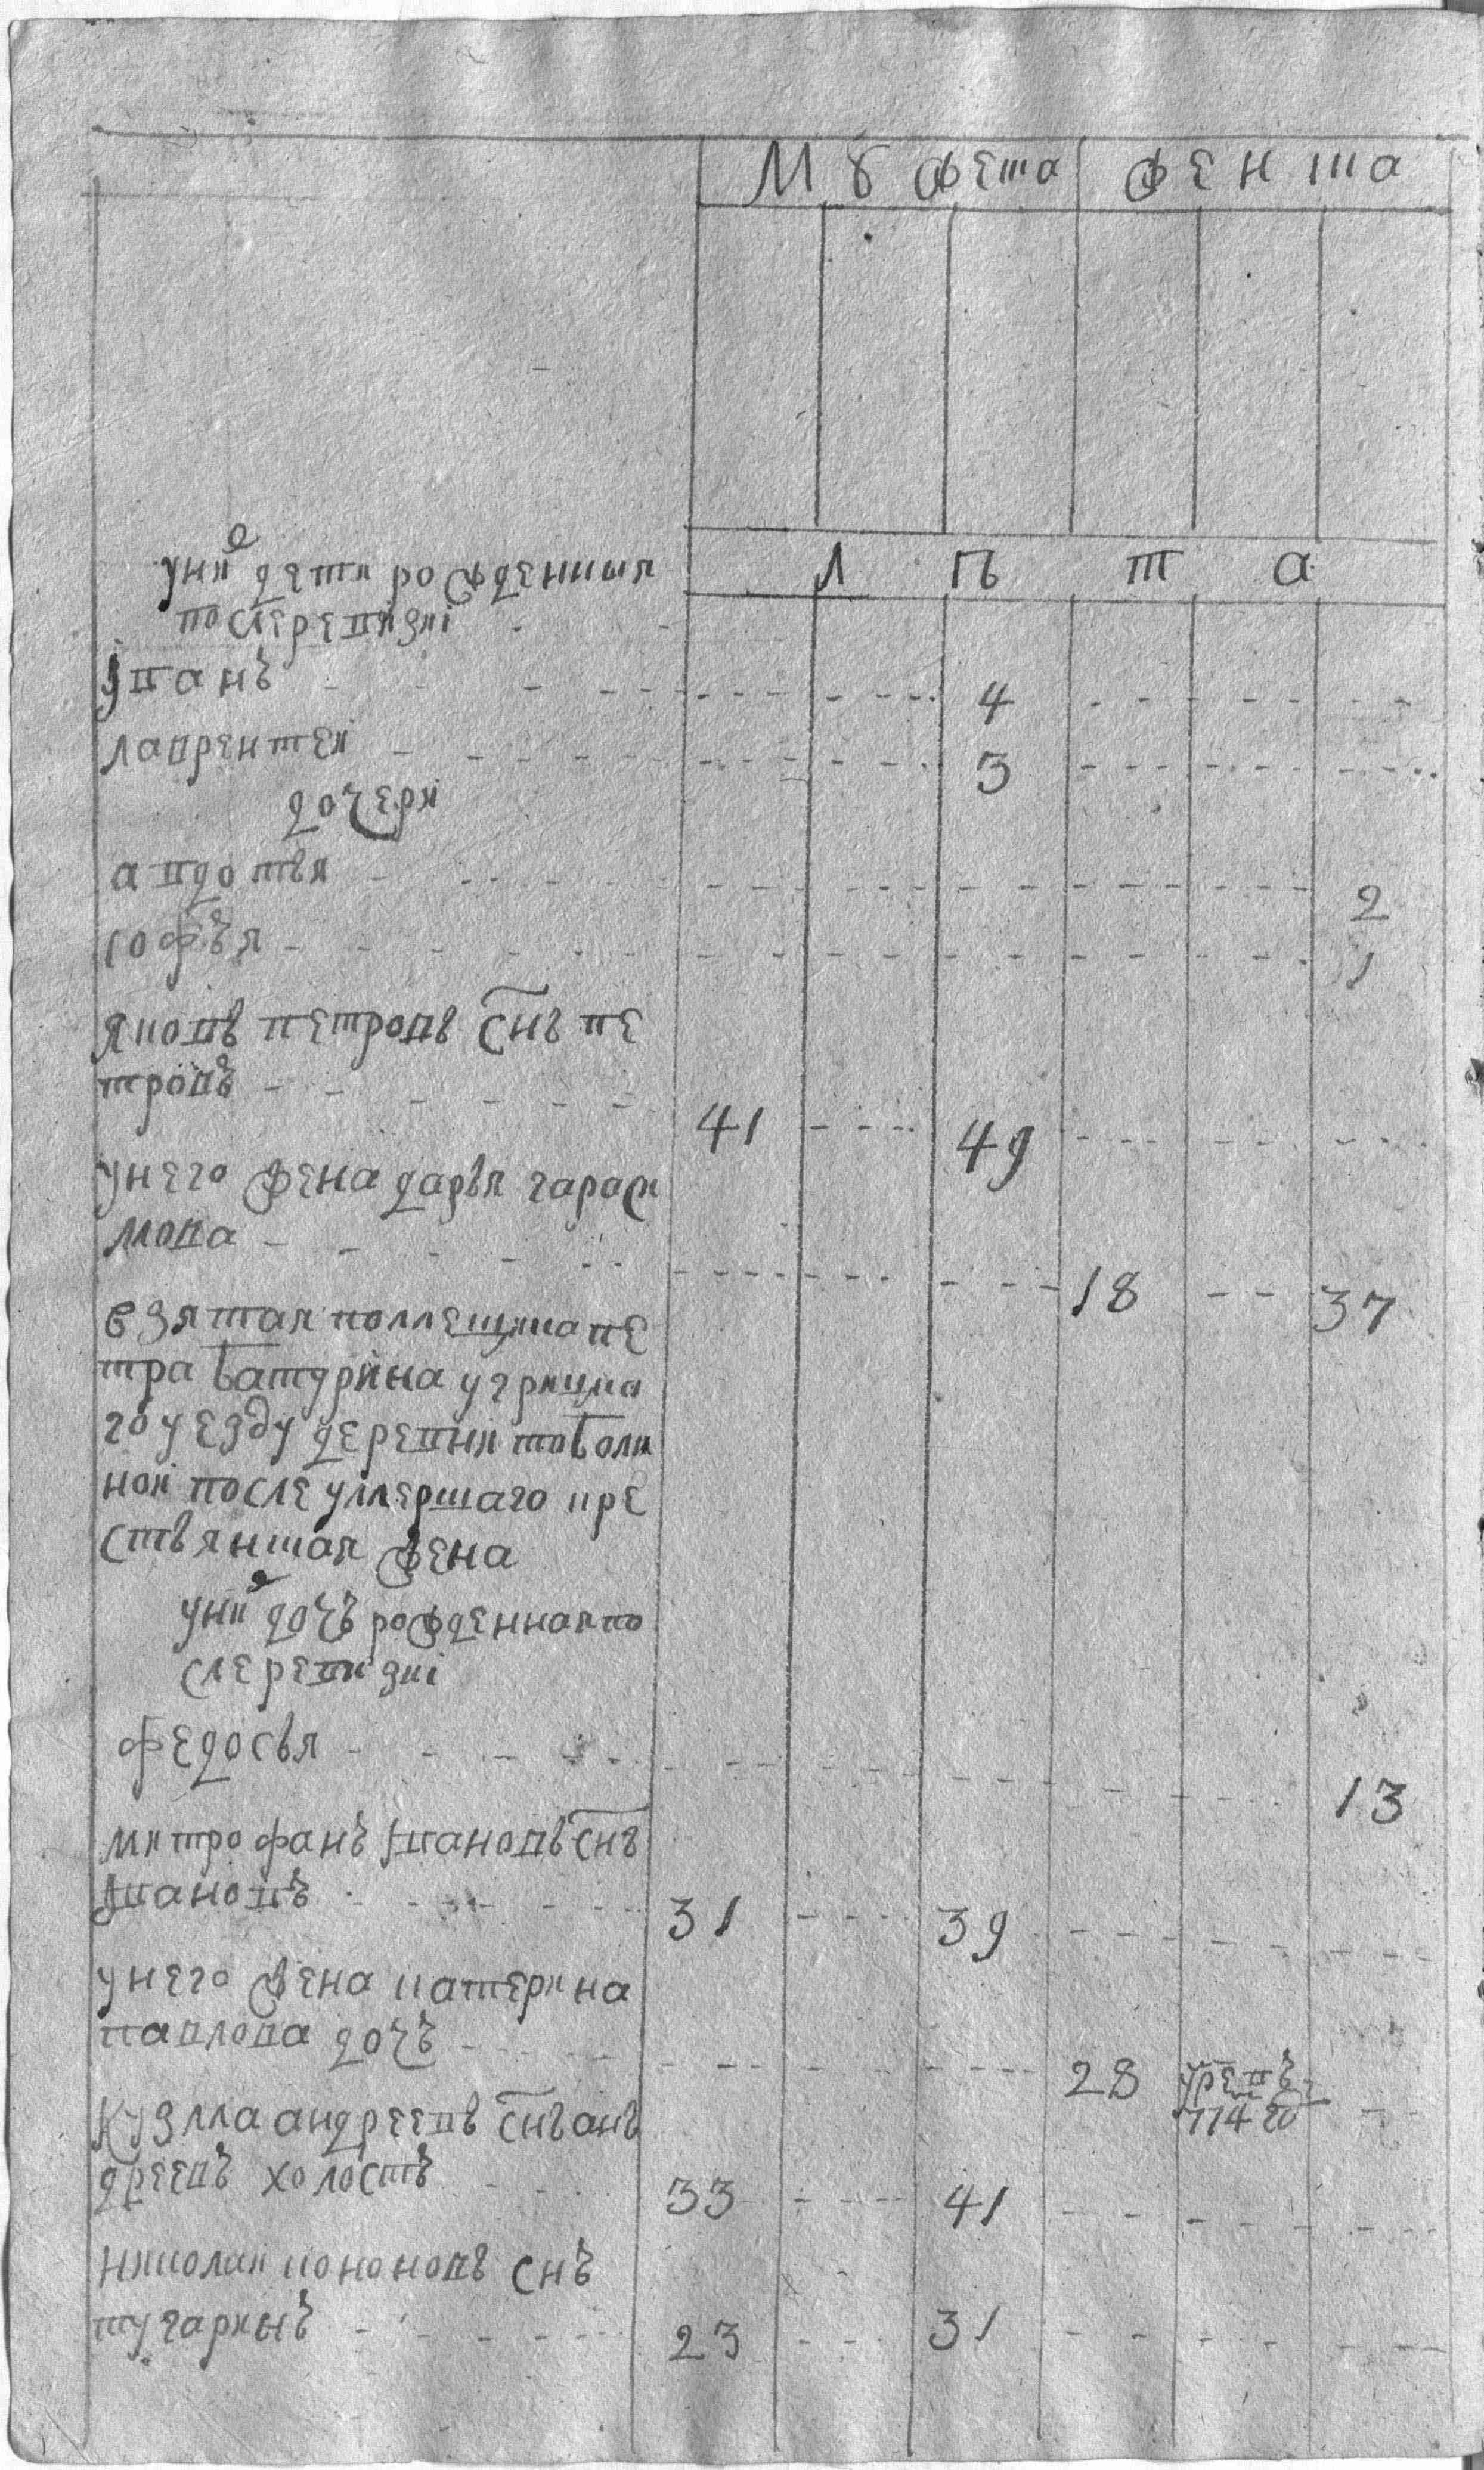 Мужеска Женска
Л ѣ т а
у них дети рожденныя
после ревизиі
Іванъ 4
лаврентей 3
дочери
авдотья 2
софья 1
яковъ петровъ снъ пе
тровъ 41 49
у него жена дарья гараси
мова 18 37
взятая помещика пе
тра батурина угрицка
го уезду деревни товоли
ной после умершаго кре
стьянина жена
у них дочь рожденная по
сле ревизиі
федосья 13
митрофанъ Івановъ снъ
Івановъ 31 39
у него жена катерина
павлова дочь 28 умре въ
774 го
кузма андреевъ снъ анъ
дреевъ холостъ 33 41
николай кононовъ снъ
тугаринъ 23 31